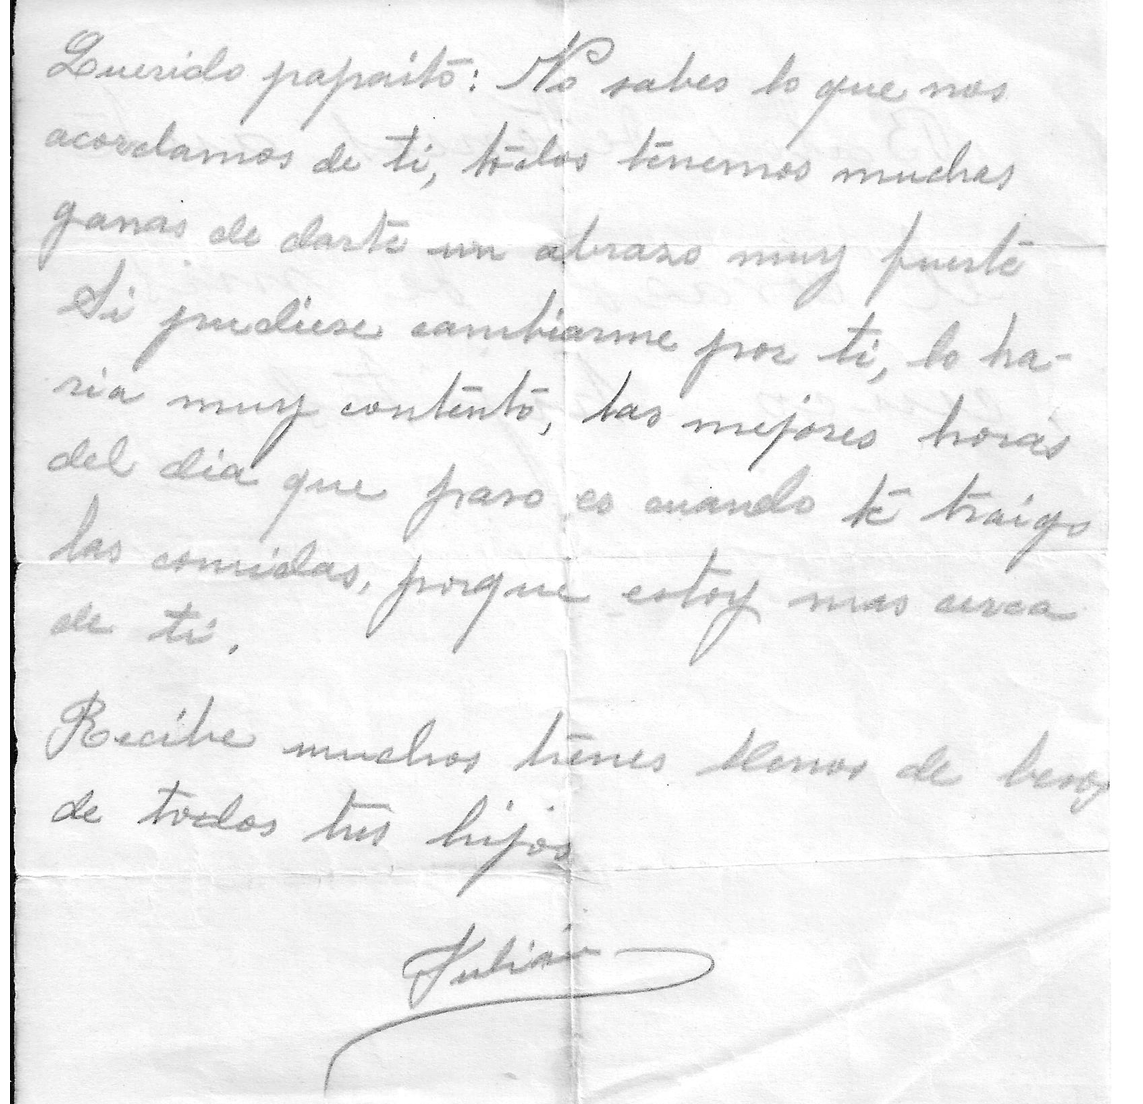 Querido papaito: No sabes lo que nos
acordamos de ti, todos tenemos muchas
ganas de darte un abraso muy fuerte
Si pudiese cambiarme por ti, lo ha-
ria muy contento, las mejores horas
del dia que paso es cuando te traigo
las comidas, porque estoy mas cerca
de ti.
Recibe muchos trenes llenos de besos
de todos tus hijos
Julián